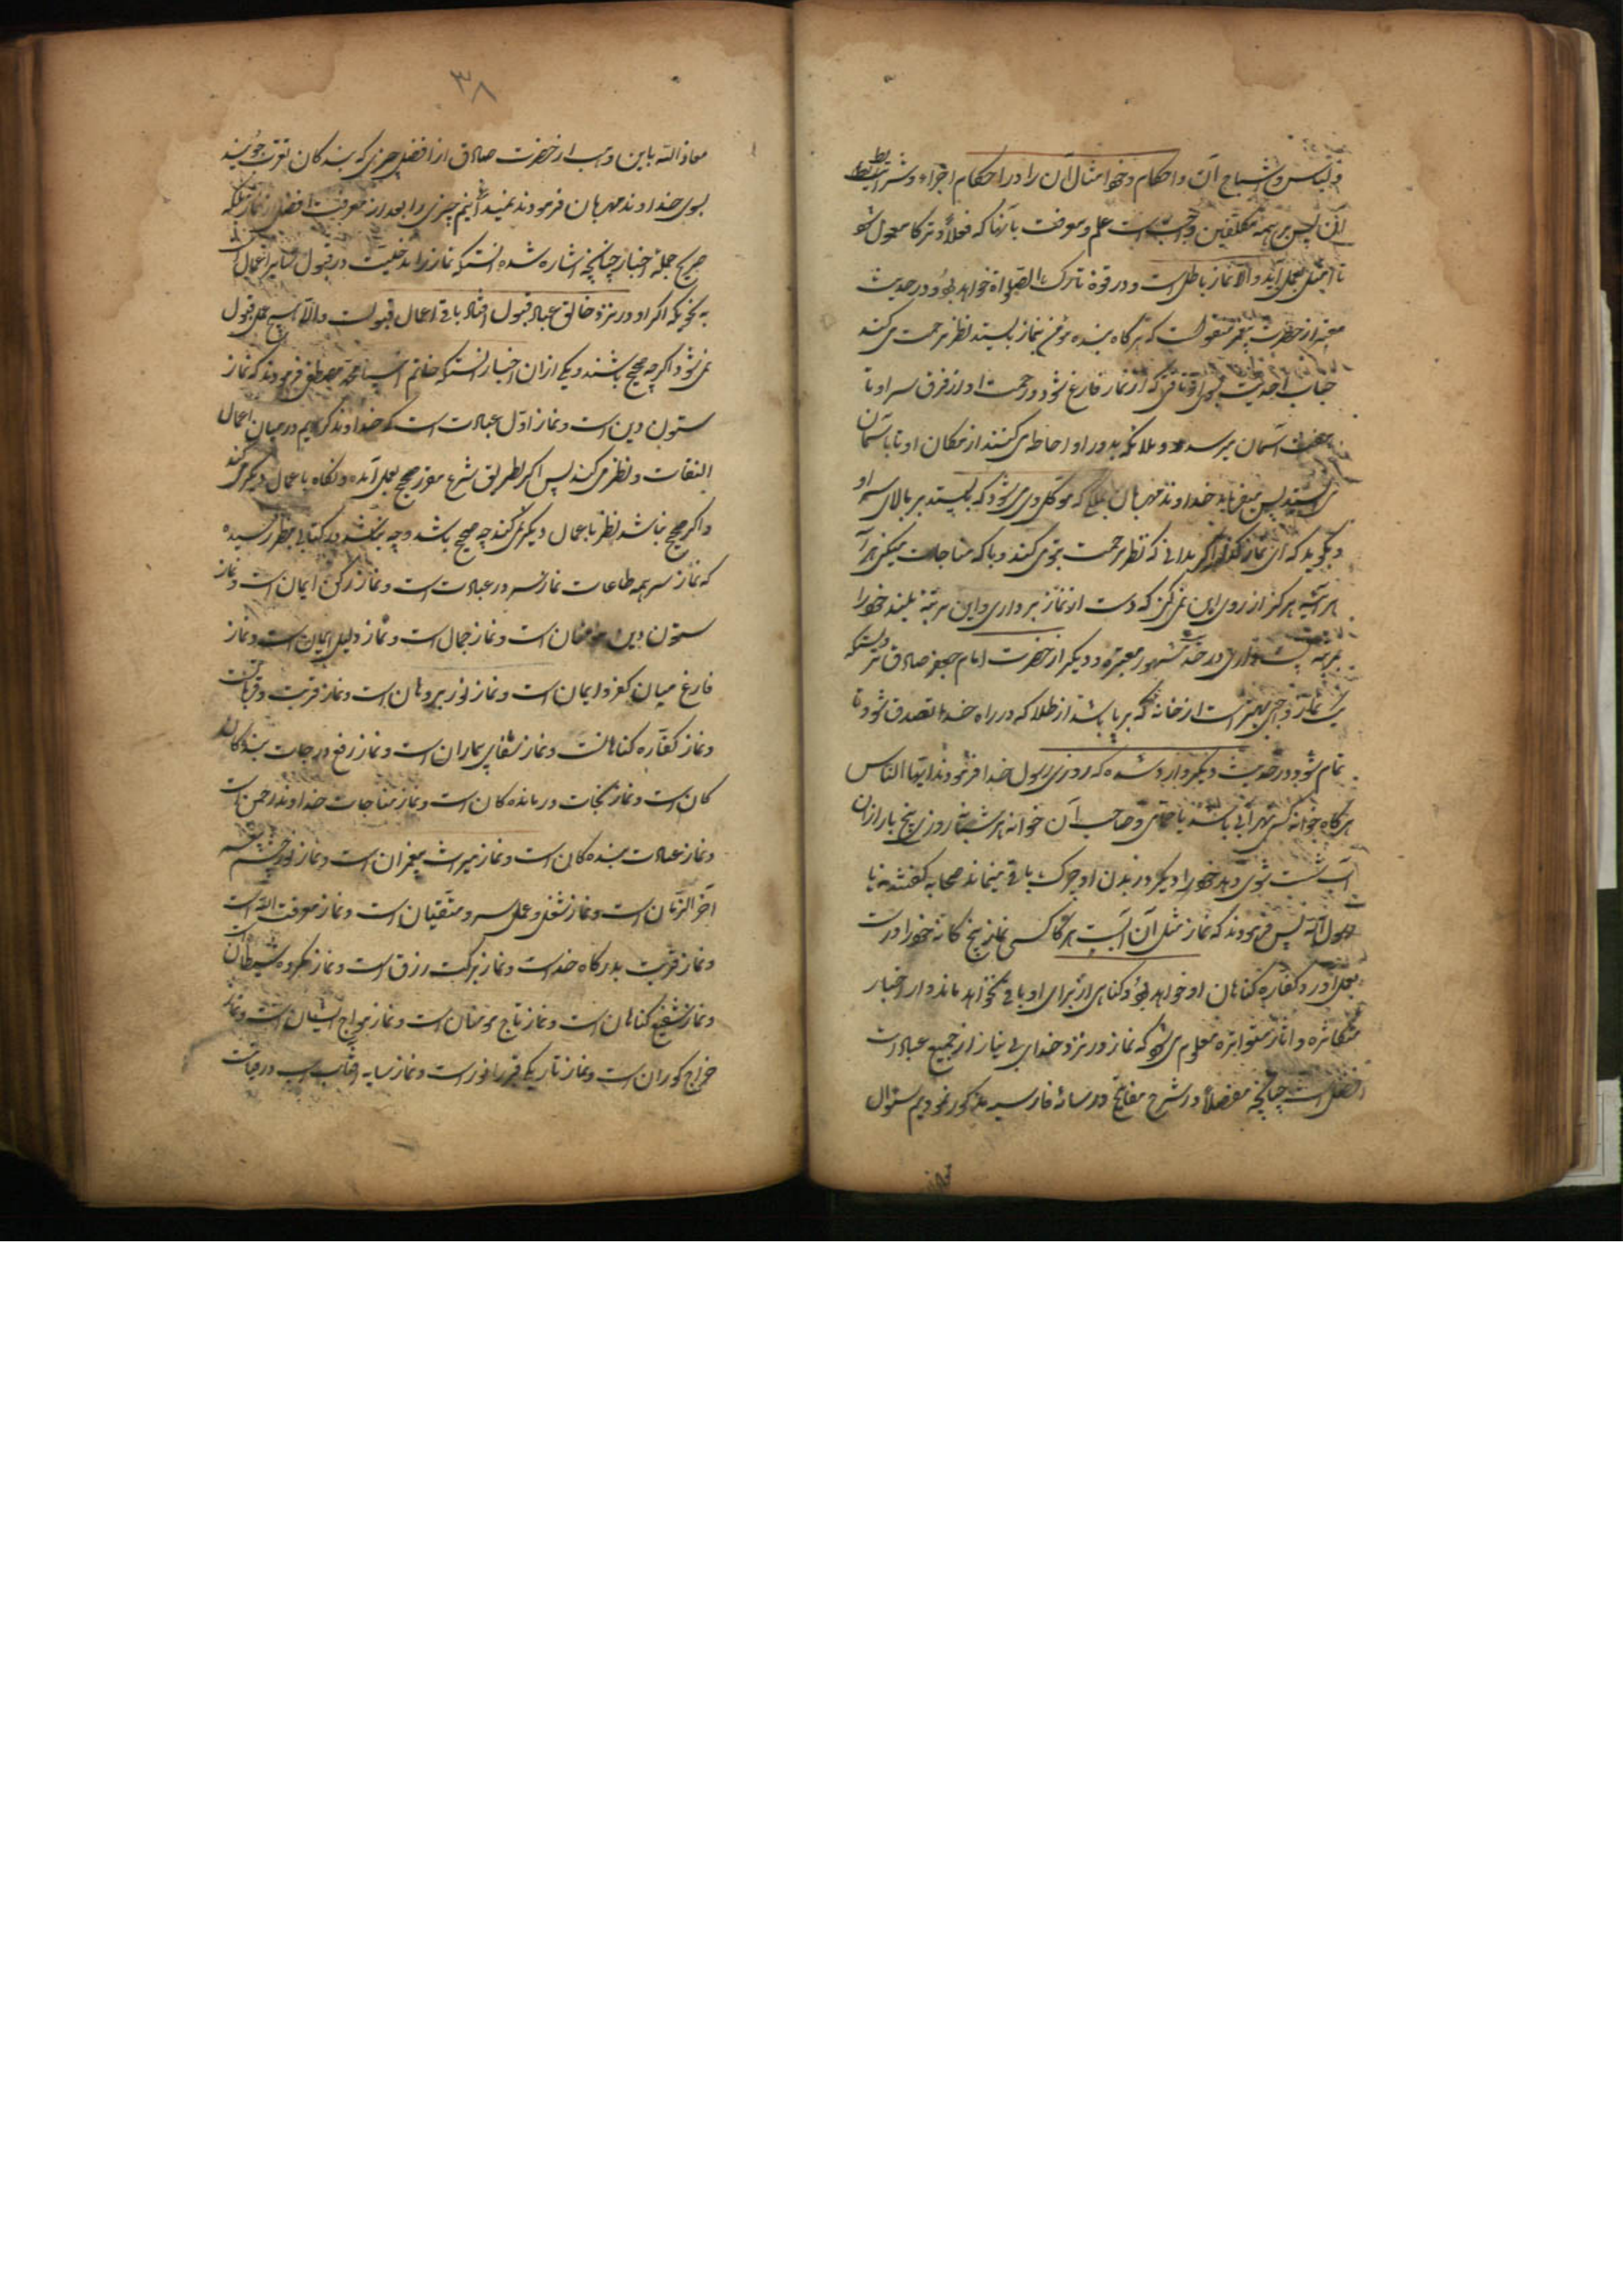 و لباس و اشباح آن و احکام و نحو امثال آن را در احکام اجزاء و شرایط
آن پس بر همه مکلفین واجب است علم و معرفت بآنها که فعلاً و ترکا معمول شو
تا امتثل بعمل آید و الا نماز باطل است و در قوة تارک الصلواة خواهد بود و در حدیث
معتبر از حضرت پیغمبر منقول است که هرگاه بنده مؤمن بنماز بایستد نظر مرحمت می کند
جناب احدیت بسوی او تا وقتی که از نماز فارغ شود و رحمت او از فرق سر او تا
آسمان میرسد و ملائکه بدور او احاطه می کنند از مکان او تا بآسمان
پس میفرماید خداوند مهربان ملکی که موکل وی می شود که بایستد بر بالای سر او
و بگوید که ای نماز گذار اگر بدانی که نظر رحمت بتو می کند و با که مناجات میکنی هر آ
هر آینه هرگز از روی این نمی کنی که دست از نماز برداری و این مرتبه بلند خود را
در حدیث مشهور معتبره و دیگر از حضرت امام جعفر صادق
نماز واجبی بهتر است از خانه که پر باشد از طلا که در راه خدا تصدق شود تا
تمام شود و در حدیث دیگر وارد شده که روزی رسول خدا فرمودند ایها الناس
هرگاه خوانه کسی نهر آبی باشد یا حمامی و صاحب آن خوانه هر شبانه روز پنج بار از آن
آب شست شوی دهد خود را دیگر در بدن او چرک باقی میماند صحابه گفتند نه یا
رسول الله پس فرمودند که نماز مثل آن آبست هرگاه کسی نماز پنج گانه خود را درست
بعمل آورد کفاره گناهان او خواهد بود و گناهی از برای او باقی نخواهد ماند و از اخبار
متکاثره و آثار متواتره معلوم می شود که نماز در نزد خدای بی نیاز از جمیع عبادات
افضل است چنانچه مفصلاً در شرح مفاتیح و رسالهٔ فارسیه مذکور نمودیم سئوال
۳۸
معاذ الله باین وهب از حضرت صادق از افضل چیزی که بندگان تقرب جویند
بسوی خداوند مهربان فرمودند نمیدانیم چیزی را بعد از معرفت افضل از نماز بلکه
صریح جملهٔ اخبار چنانچه اشاره شده آنستکه نماز را مدخلیت در قبول سایر اعمال است
به نحویکه اگر او در نزد خالق عباد قبول افتد باقی اعمال قبولست و الا هیچ عمل قبول
نمی شود اگر چه صحیح باشند و یکی از آن اخبار آنستکه خاتم انبیا محمد مصطفی فرمودند که نماز
ستون دین است و نماز اول عبادت است که خداوند کریم در میان اعمال
التفات و نظر می کند پس اگر بطریق شرع مقرر صحیح بعمل آمده و نگاه باعمال دیگر می کند
و اگر صحیح نباشد نظر باعمال دیگر نمی کند چه صحیح باشد و چه نباشد و در کتابی بنظر رسیده
که نماز سر همه طاعات نماز سرور عبادت است و نماز رکن ایمان است و نماز
ستون دین مؤمنان است و نماز جمال است و نماز دلیل ایمان است و نماز
فارغ میان کفر و ایمان است و نماز نور بروهان است و نماز قربت و قربان است
و نماز کفاره گناهانست و نماز شفای بیماران است و نماز رفع درجات بنده گان
کان است و نماز نجات درمانده کان است و نماز مناجات خداوند رحمن است
و نماز عبادت بنده کان است و نماز میراث پیغمبران است و نماز نور چشم پیغمبر
آخر الزمان است و نماز شغل و عمل سرو متقیان است و نماز معرفت الله است
و نماز قربت بدرگاه خداست و نماز برکت رزق است و نماز مکروه شیطان است
و نماز شفیع گناهان است و نماز تاج مؤمنان است و نماز معراج ایشان است و نماز
خراج کوران است و نماز تاریکی قبر را نور است و نماز سایه آفتاب در قیامت